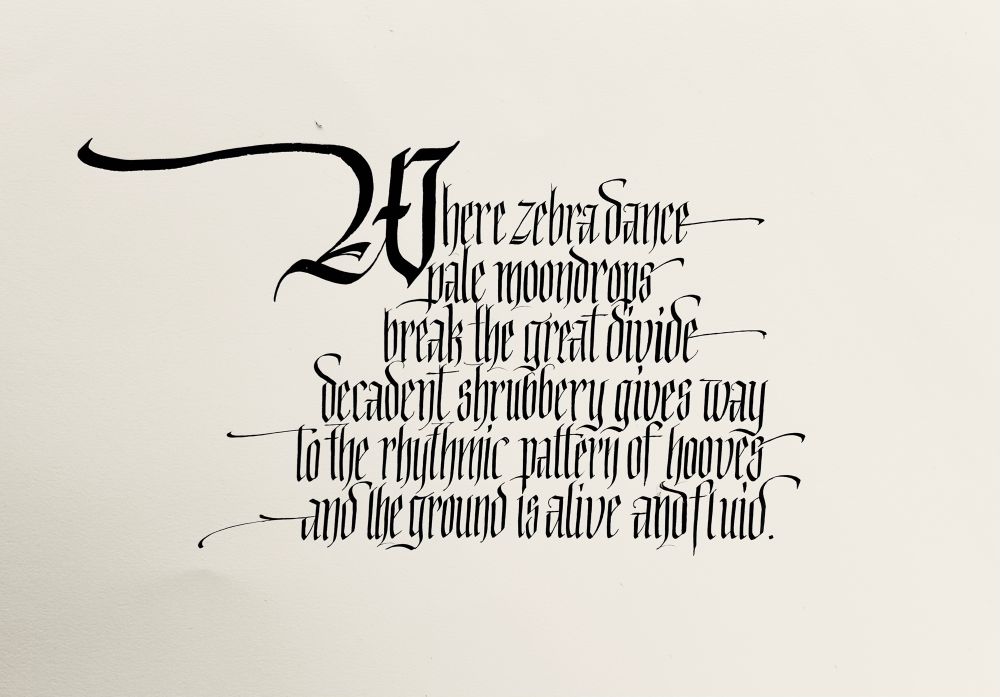 Where zebra dance
pale moondrops
break the great divide
decadent shrubbery gives way
to the rhythmic pattern of hooves
and the ground is alive and fluid.